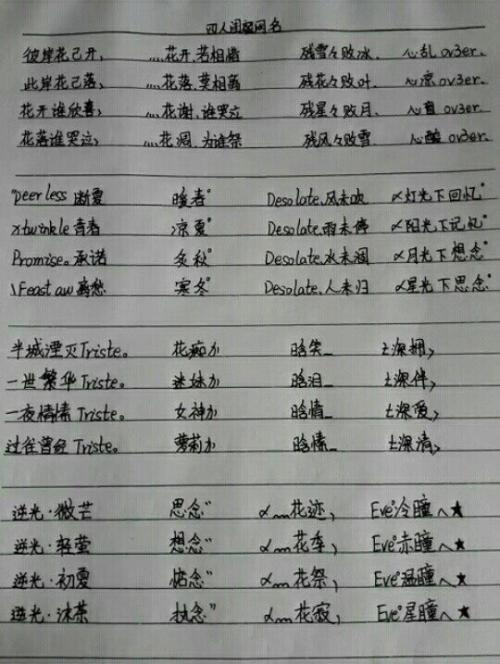 四人闺蜜网名
彼岸花已开, ....花开.若相惜 残雪々败冰. 心乱 ov3er.
此岸花已落, ....花落.莫相离 残花々败叶. 心凉 ov3er.
花开谁欣喜, ....花谢.谁哭泣 残星々败月. 心 ov3er.
花落谁哭泣, ....花凋.为谁祭 残风々败雪 心酸 ov3er.
"peerless 夏 暖春° Desolate.风未吹 α灯光下回忆"
xtwinkle 青春 凉夏° Desolate.雨未停 α阳光下记忆"
Promise。承诺 冬秋° Desolate.水未涸 α月光下想念"
\Feast aw 离愁 寒冬° Desolate.人未归 α星光下思念"
半城湮灭Triste。 花痴か 晗笑_ 深拥,
一世繁华Triste。 迷妹か 晗泪_ 深伴,
一夜情愫Triste。 女神か 晗情_ 深爱,
过往曾经Triste。 萝莉か 晗情_ 深情,
逆光·微芒 思念" 花迹, Eve°冷瞳へ★
逆光·轻萤 想念" 花季, Eve°赤瞳へ★
逆光·初夏 惦念" 花祭, Eve°温瞳へ★
逆光·沫茶 执念" 花寂, Eve°星瞳へ★